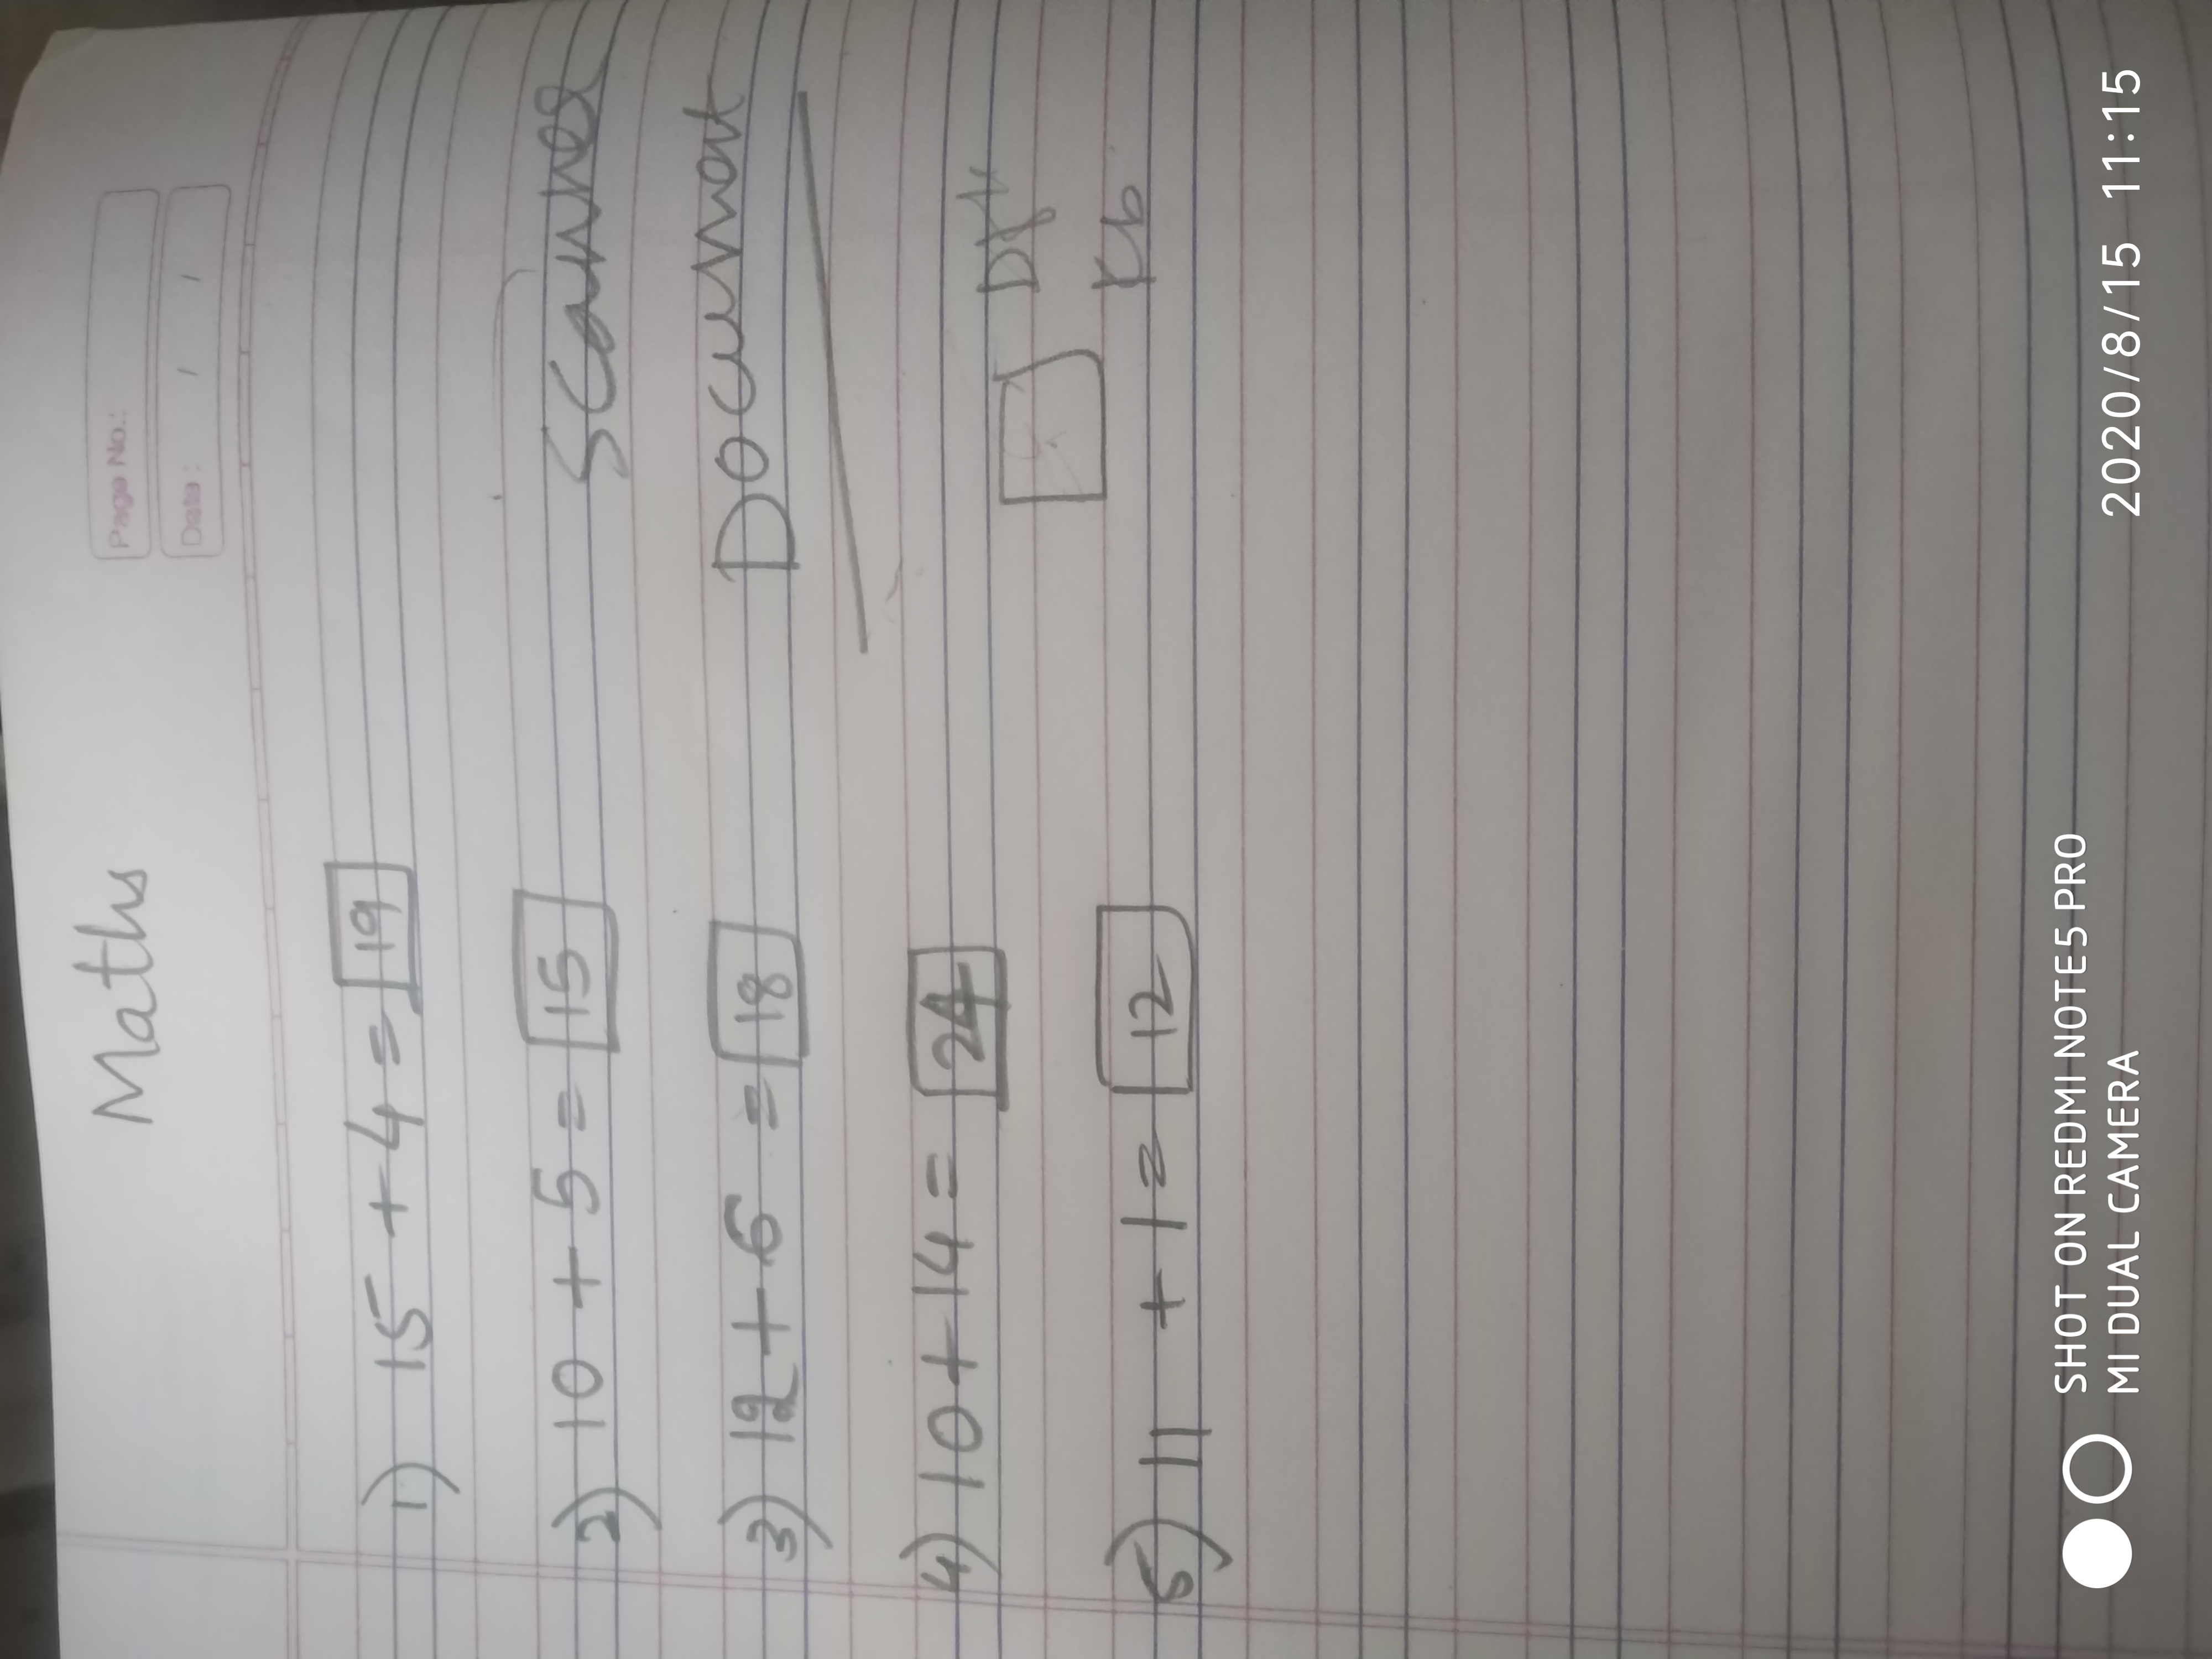 Maths
Page No.:
Date: / /
1) 15 + 4 = 19
2) 10 + 5 = 15
Scanner
3) 12 + 6 = 18
Documat
4) 10 + 14 = 24
5) 11 + 1 = 12
Kb
SHOT ON REDMI NOTE 5 PRO
MI DUAL CAMERA
2020/8/15 11:15